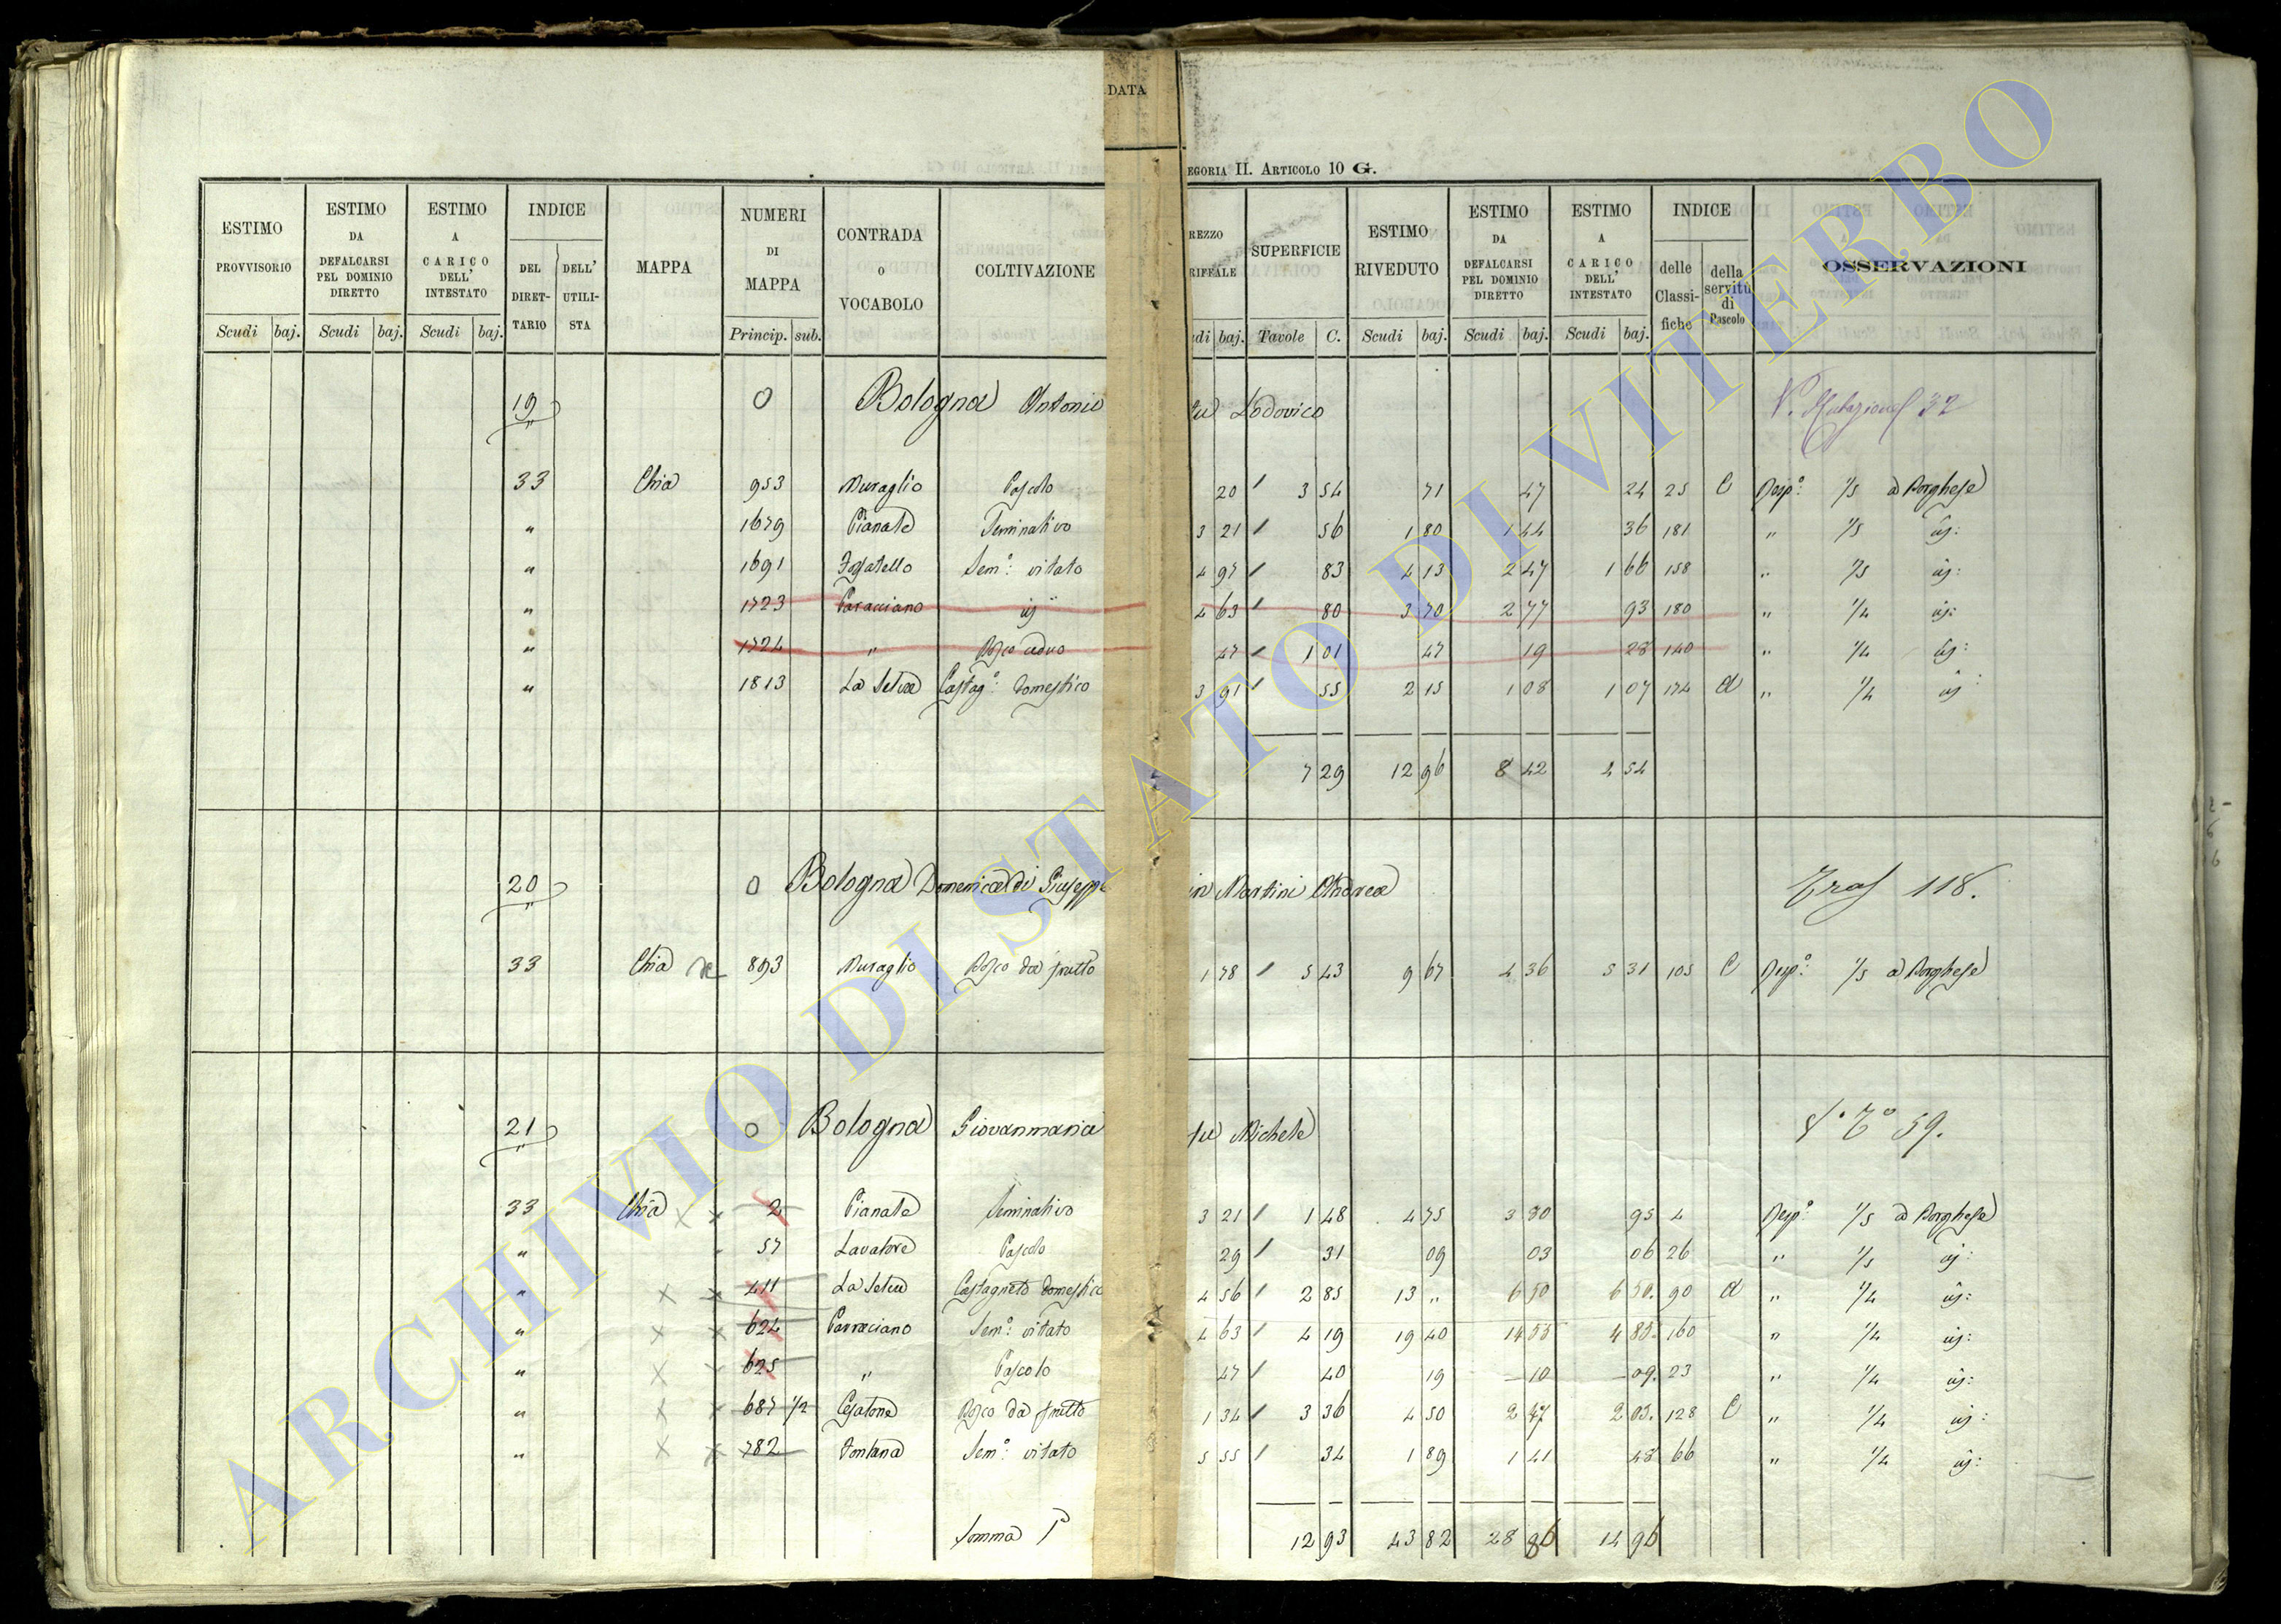 DATA
EGORIA II. ARTICOLO 10 G.
ESTIMO PROVVISORIO Scudi baj.
ESTIMO DA DEFALCARSI PEL DOMINIO DIRETTO Scudi baj.
ESTIMO A CARICO DELL' INTESTATO Scudi baj.
INDICE DEL DIRET-TARIO DELL' UTILI-STA
MAPPA
NUMERI DI MAPPA Princip. sub.
CONTRADA O VOCABOLO
COLTIVAZIONE
REZZO RIFFALE di baj.
SUPERFICIE Tavole C.
ESTIMO RIVEDUTO Scudi baj.
ESTIMO DA DEFALCARSI PEL DOMINIO DIRETTO Scudi baj.
ESTIMO A CARICO DELL' INTESTATO Scudi baj.
INDICE delle Classi-fiche della servitù di Pascolo
OSSERVAZIONI
19 0 Bologna Antonio fu Lodovico 32
33 Chia 953 Muraglio Pascolo 20 3 54 71 47 24 25 C Resp: 1/5 a Borghese
" 1679 Pianate Seminativo 3 21 56 1 80 1 44 36 181 " 1/5 ij:
" 1691 Fossatello Sem: vitato 4 97 83 4 13 2 47 1 66 158 " ij:
" 1723 ij 4 63 80 3 70 2 77 93 180 " 1/4 ij:
" 1724 " Bosco ceduo 47 1 01 47 19 28 140 " 1/4 ij:
" 1813 La Selva Castag: domestico 3 91 55 2 15 1 08 1 07 174 a " 1/4 ij
7 29 12 96 8 42 4 54
20 0 Bologna Domenica di Giuseppe in Martini Andrea Tras 118.
33 Chia 893 Muraglio Bosco da frutto 1 78 5 43 9 67 4 36 5 31 105 C Resp: 1/5 a Borghese
21 0 Bologna Giovanmaria fu Michele 59.
33 Chia x x 2 Pianate Seminativo 3 21 1 48 4 75 3 80 95 4 Resp: 1/5 a Borghese
" 57 Lavatore Pascolo 29 31 09 03 06 26 " 1/5 ij:
" x x 411 La Selva Castagneto domestico 4 56 2 85 13 " 6 50 6 50. 90 a " 1/4 ij:
" x x 624 Parracciano Sem: vitato 4 63 4 19 19 40 14 55 4 85. 160 " 1/4 ij:
" x x 625 " Pascolo 47 40 19 10 09. 23 " 1/4 ij:
" x x 687 1/2 Bosco da frutto 1 34 3 36 4 50 2 47 2 03. 128 C " 1/4 ij:
" x x 782 Fontana Sem: vitato 5 55 34 1 89 1 41 48 66 " 1/4 ij:
Somma P 12 93 43 82 28 86 14 96
ARCHIVIO DI STATO DI VITERBO